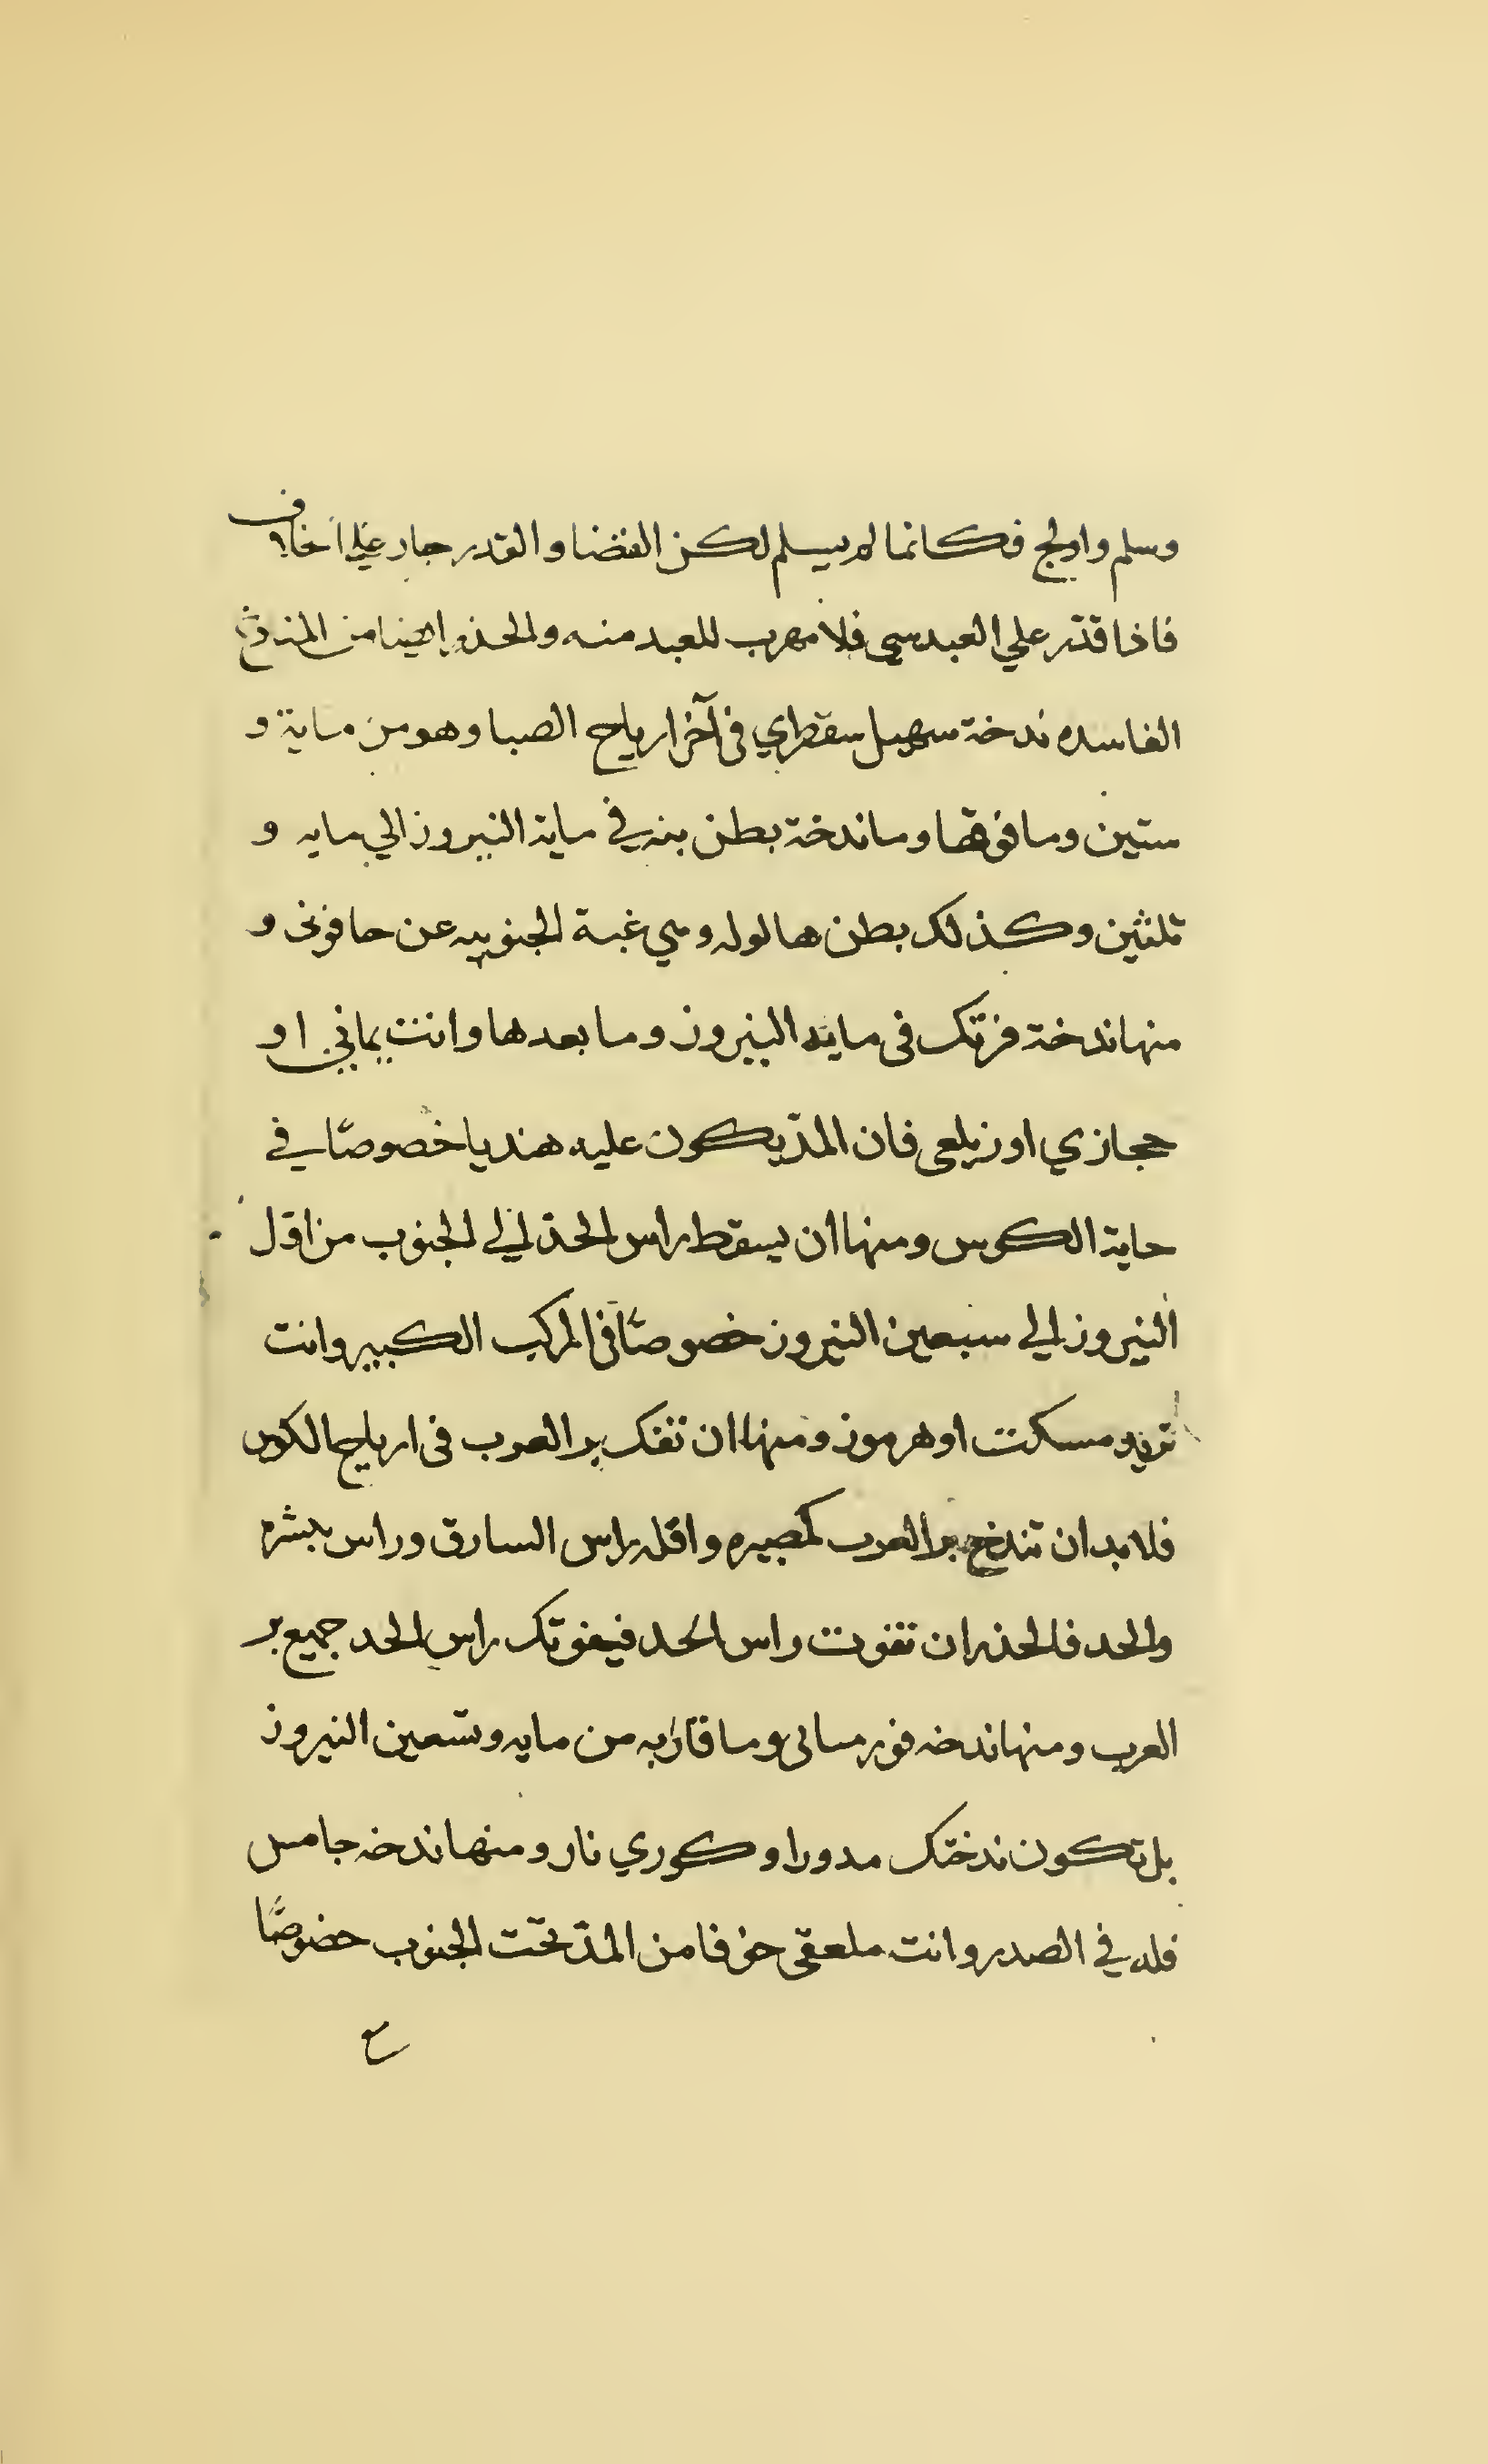 وسلم واولج فكانما لم يسلم لكن القضا والقدر جار علي
فاذا قدّر علي العبد سي فلا مهرب للعبد منه والحذر ايضا من
الفاسده ندخة سهيل سقطراي في آخر ارياح الصبا وهو من ماية و
ستين وما فوقها وما ندخة بطن بنه في ماية النيروز الي مايه و
ثلثين وكذلك بطن هالوله وهي غبة الجنوبيه عن حافوني و
منها ندخة فرتك في مايه النيروز وما بعدها وانت يماني او
حجازي او زيلعي فان المدّ يكون عليه هنديا خصوصًا في
حاية الكوس ومنها ان يسقط راس الحدّ الي الجنوب من اوّل
النيروز الي سبعين النيروز خصوصًا في المركب الكبير وانت
تريد مسكت او هرموز ومنها ان تفك بر العرب في ارياح الكوس
فلا بد ان تندخ بر العرب كمصيره واقله راس السارق وراس
والحد فالحذر ان تفوت راس الحد فيفوتك راس الحد جميع بر
العرب ومنها ندخه فورميانى وما قاربه من مايه وتسعين النيروز
بل تكون ندختك مدورا وكوري نار ومنها ندخه جامس
فله في الصدر وانت ملعقي خوفا من المدّ تحت الجنوب خضوصًا